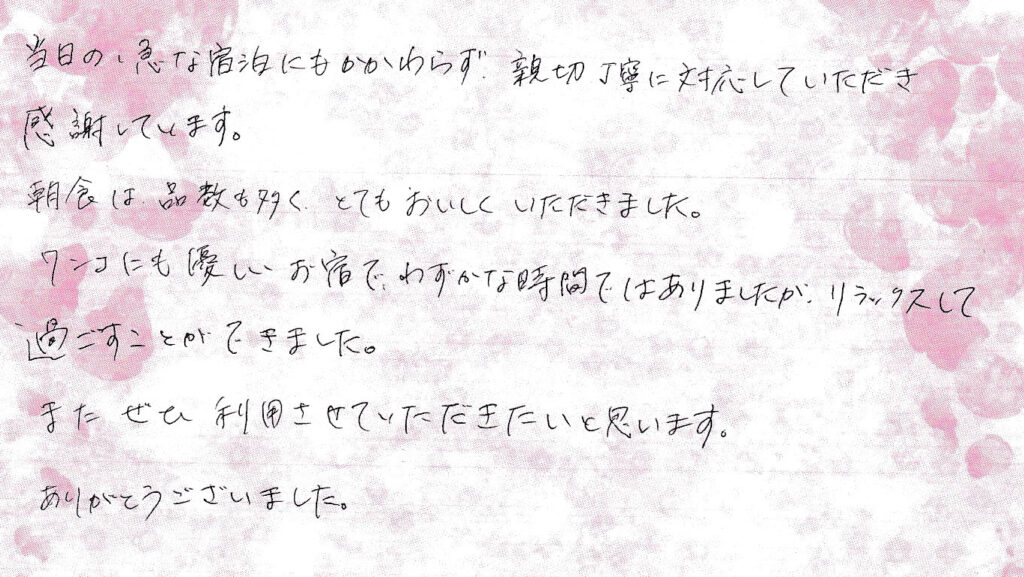 当日の急な宿泊にもかかわらず、親切丁寧に対応していただき
感謝しています。
朝食は、品数も多く、とてもおいしくいただきました。
ワンコにも優しいお宿で、わずかな時間ではありましたが、リラックスして
過ごすことができました。
またぜひ利用させていただきたいと思います。
ありがとうございました。